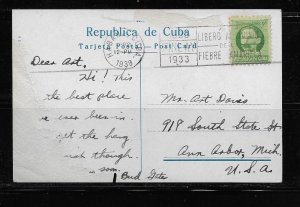 Republica de Cuba
Tarjeta Postal - Post Card
12-PM
1933
LIBERO A
DE
1933 FIEBRE
Dear Art,
Hi! This
the best place
ever been in.
get the hang
though.
soon.
Bud
Mr. Art Davis
918 South State St
Ann Arbor, Mich.
U.S.A.